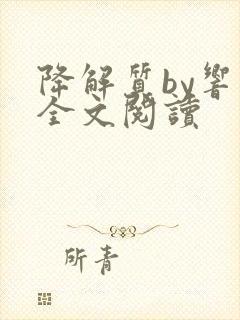 降解質by響
全文閱讀
所青